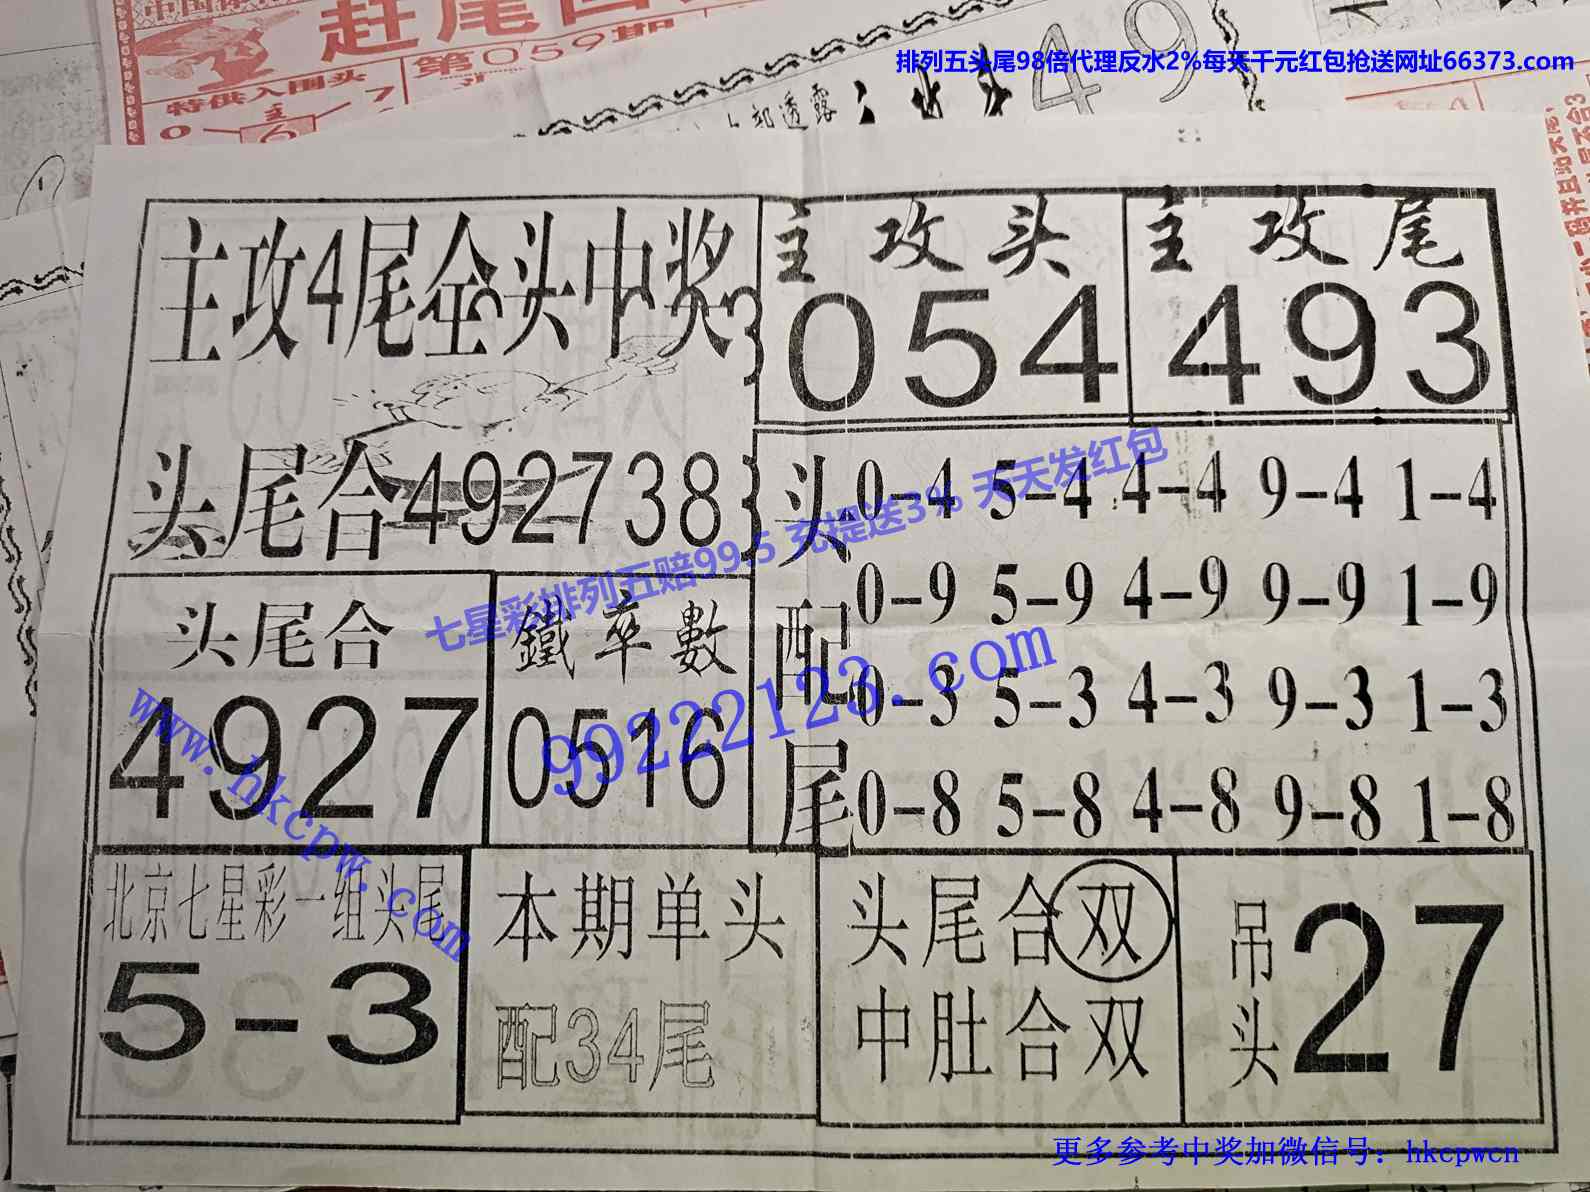 赶尾
第059期
特供入围头
主
0
6
7
透露
49
排列五头尾98倍代理反水2%每天千元红包抢送网址66373.com
主攻4尾全头中奖
头尾合492738
主攻头
054
主攻尾
493
头配尾
0-4 5-4 4-4 9-4 1-4
0-9 5-9 4-9 9-9 1-9
0-3 5-3 4-3 9-3 1-3
0-8 5-8 4-8 9-8 1-8
七星彩排列五赔99.5 充提送3% 天天发红包
99222123.com
www.hkcpw.com
头尾合
4927
鐵卒數
0516
北京七星彩一组头尾
5-3
本期单头
配34尾
头尾合双
中肚合双
吊头
27
更多参考中奖加微信号：hkcpwcn